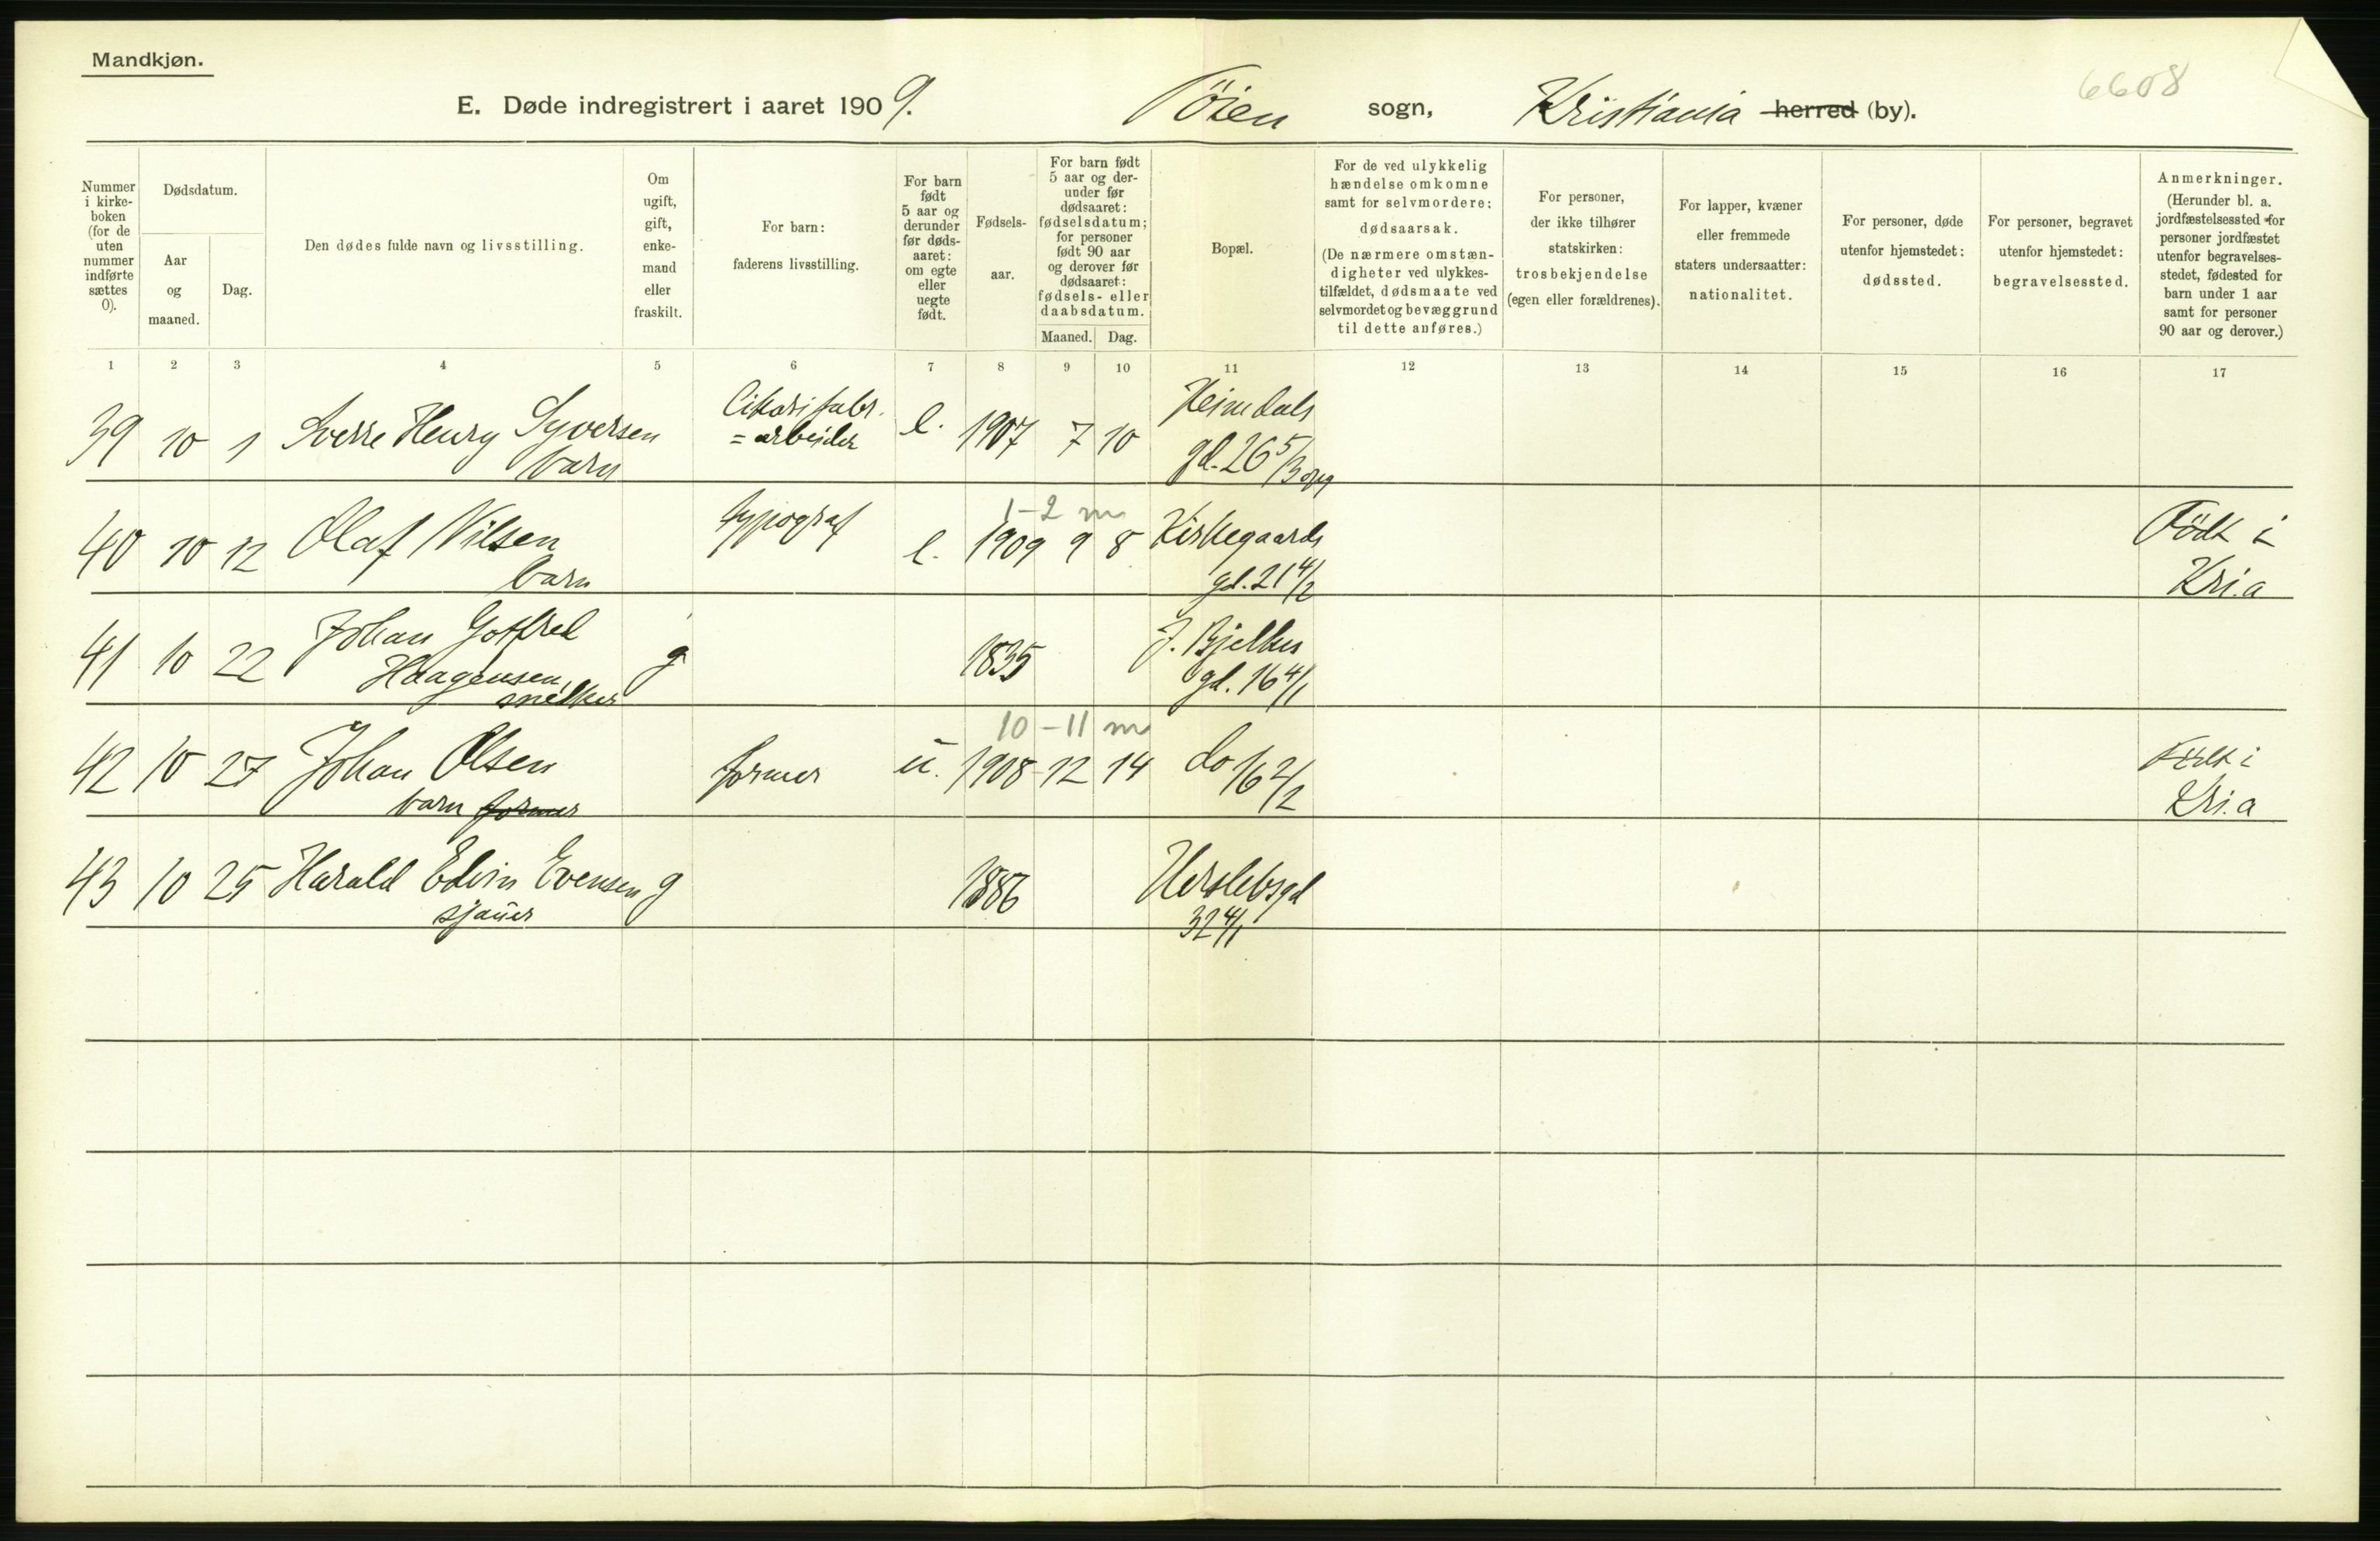 Mandkjøn.
E. Døde indregistrert i aaret 1909. Töien sogn, Kristiania herred (by).
6608
Nummer i kirkeboken (for de uten nummer indførte sættes 0).
Dødsdatum.
Aar og maaned.
Dag.
Den dødes fulde navn og livsstilling.
Om ugift, gift, enkemand eller fraskilt.
For barn: faderens livsstilling.
For barn født 5 aar og derunder før dødsaaret: om egte eller uegte født.
Fødselsaar.
For barn født 5 aar og derunder før dødsaaret: fødselsdatum; for personer født 90 aar og derover før dødsaaret: fødsels- eller daabsdatum.
Maaned. Dag.
Bopæl.
For de ved ulykkelig hændelse omkomne samt for selvmordere: dødsaarsak. (De nærmere omstændigheter ved ulykkestilfældet, dødsmaate ved selvmordet og bevæggrund til dette anføres.)
For personer, der ikke tilhører statskirken: trosbekjendelse (egen eller forældrenes).
For lapper, kvæner eller fremmede staters undersaatter: nationalitet.
For personer, døde utenfor hjemstedet: dødssted.
For personer, begravet utenfor hjemstedet: begravelsessted.
Anmerkninger. (Herunder bl. a. jordfæstelsessted for personer jordfæstet utenfor begravelsesstedet, fødested for barn under 1 aar samt for personer 90 aar og derover.)
1 2 3 4 5 6 7 8 9 10 11 12 13 14 15 16 17
39 10 1 Sverre Henry Syversen
barn
Cikorifabr.
=arbeider
e. 1907 7 10 Heimdals
gd. 26 5/3 opg
40 10 12 Olaf Nilsen
barn
typograf
1-2 m
e. 1909 9 8 Kirkegaards
gd. 21 4/2
Födt i
Kri.a
41 10 22 Johan Gotfred
Haagensen,
snedker
g 1835 J. Bjelkes
gd. 16 4/1
42 10 27 Johan Olsen
barn former
former
10-11 m
u. 1908 12 14 do 16 2/2
Födt i
Kri.a
43 10 25 Harald Edvin Evensen g 1886 Herslebsgd
sjauer
32 4/1